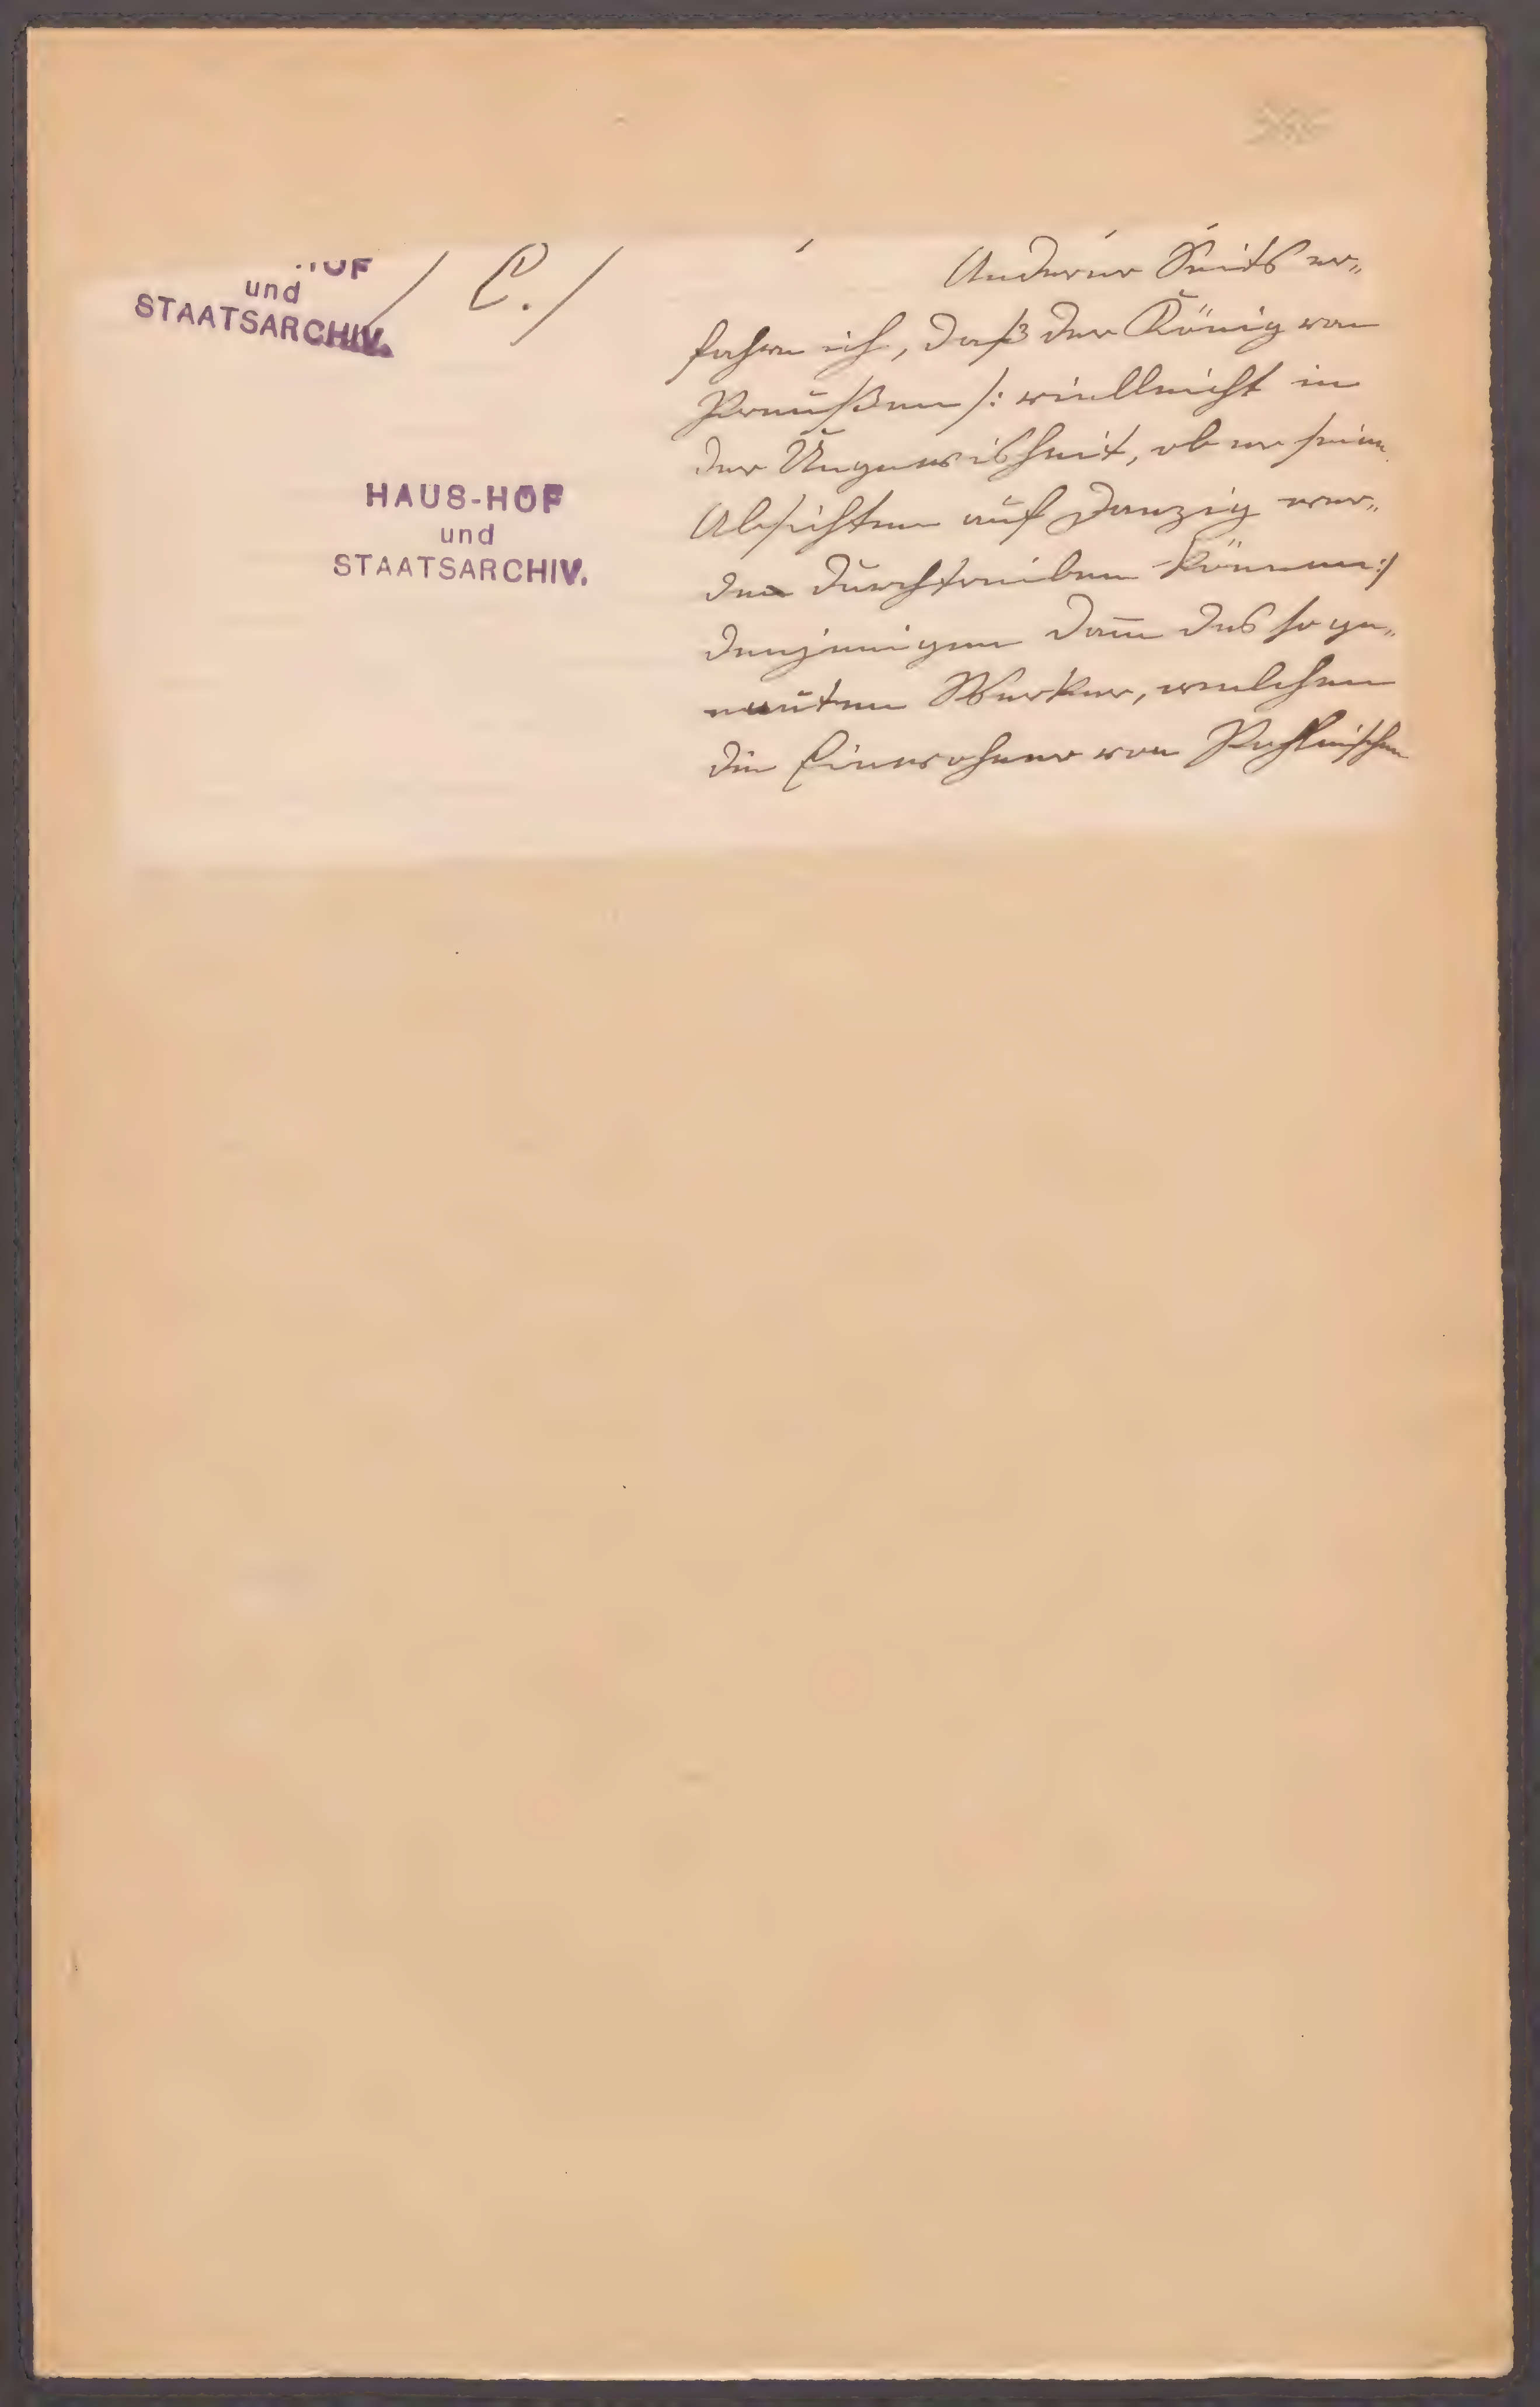 HOF
und
STAATSARCHIV.
/ C. /
HAUS-HOF
und
STAATSARCHIV.
Anderer Seits er„
fahre ich, daß der König von
Preußen /: vielleicht in
der Ungewisheit, ob er seine
Absichten auf Danzig wer„
de durchtreiben können :/
denjenigen dam des so ge„
nanten Werker, welchen
die Einwohner von Pohlnischen